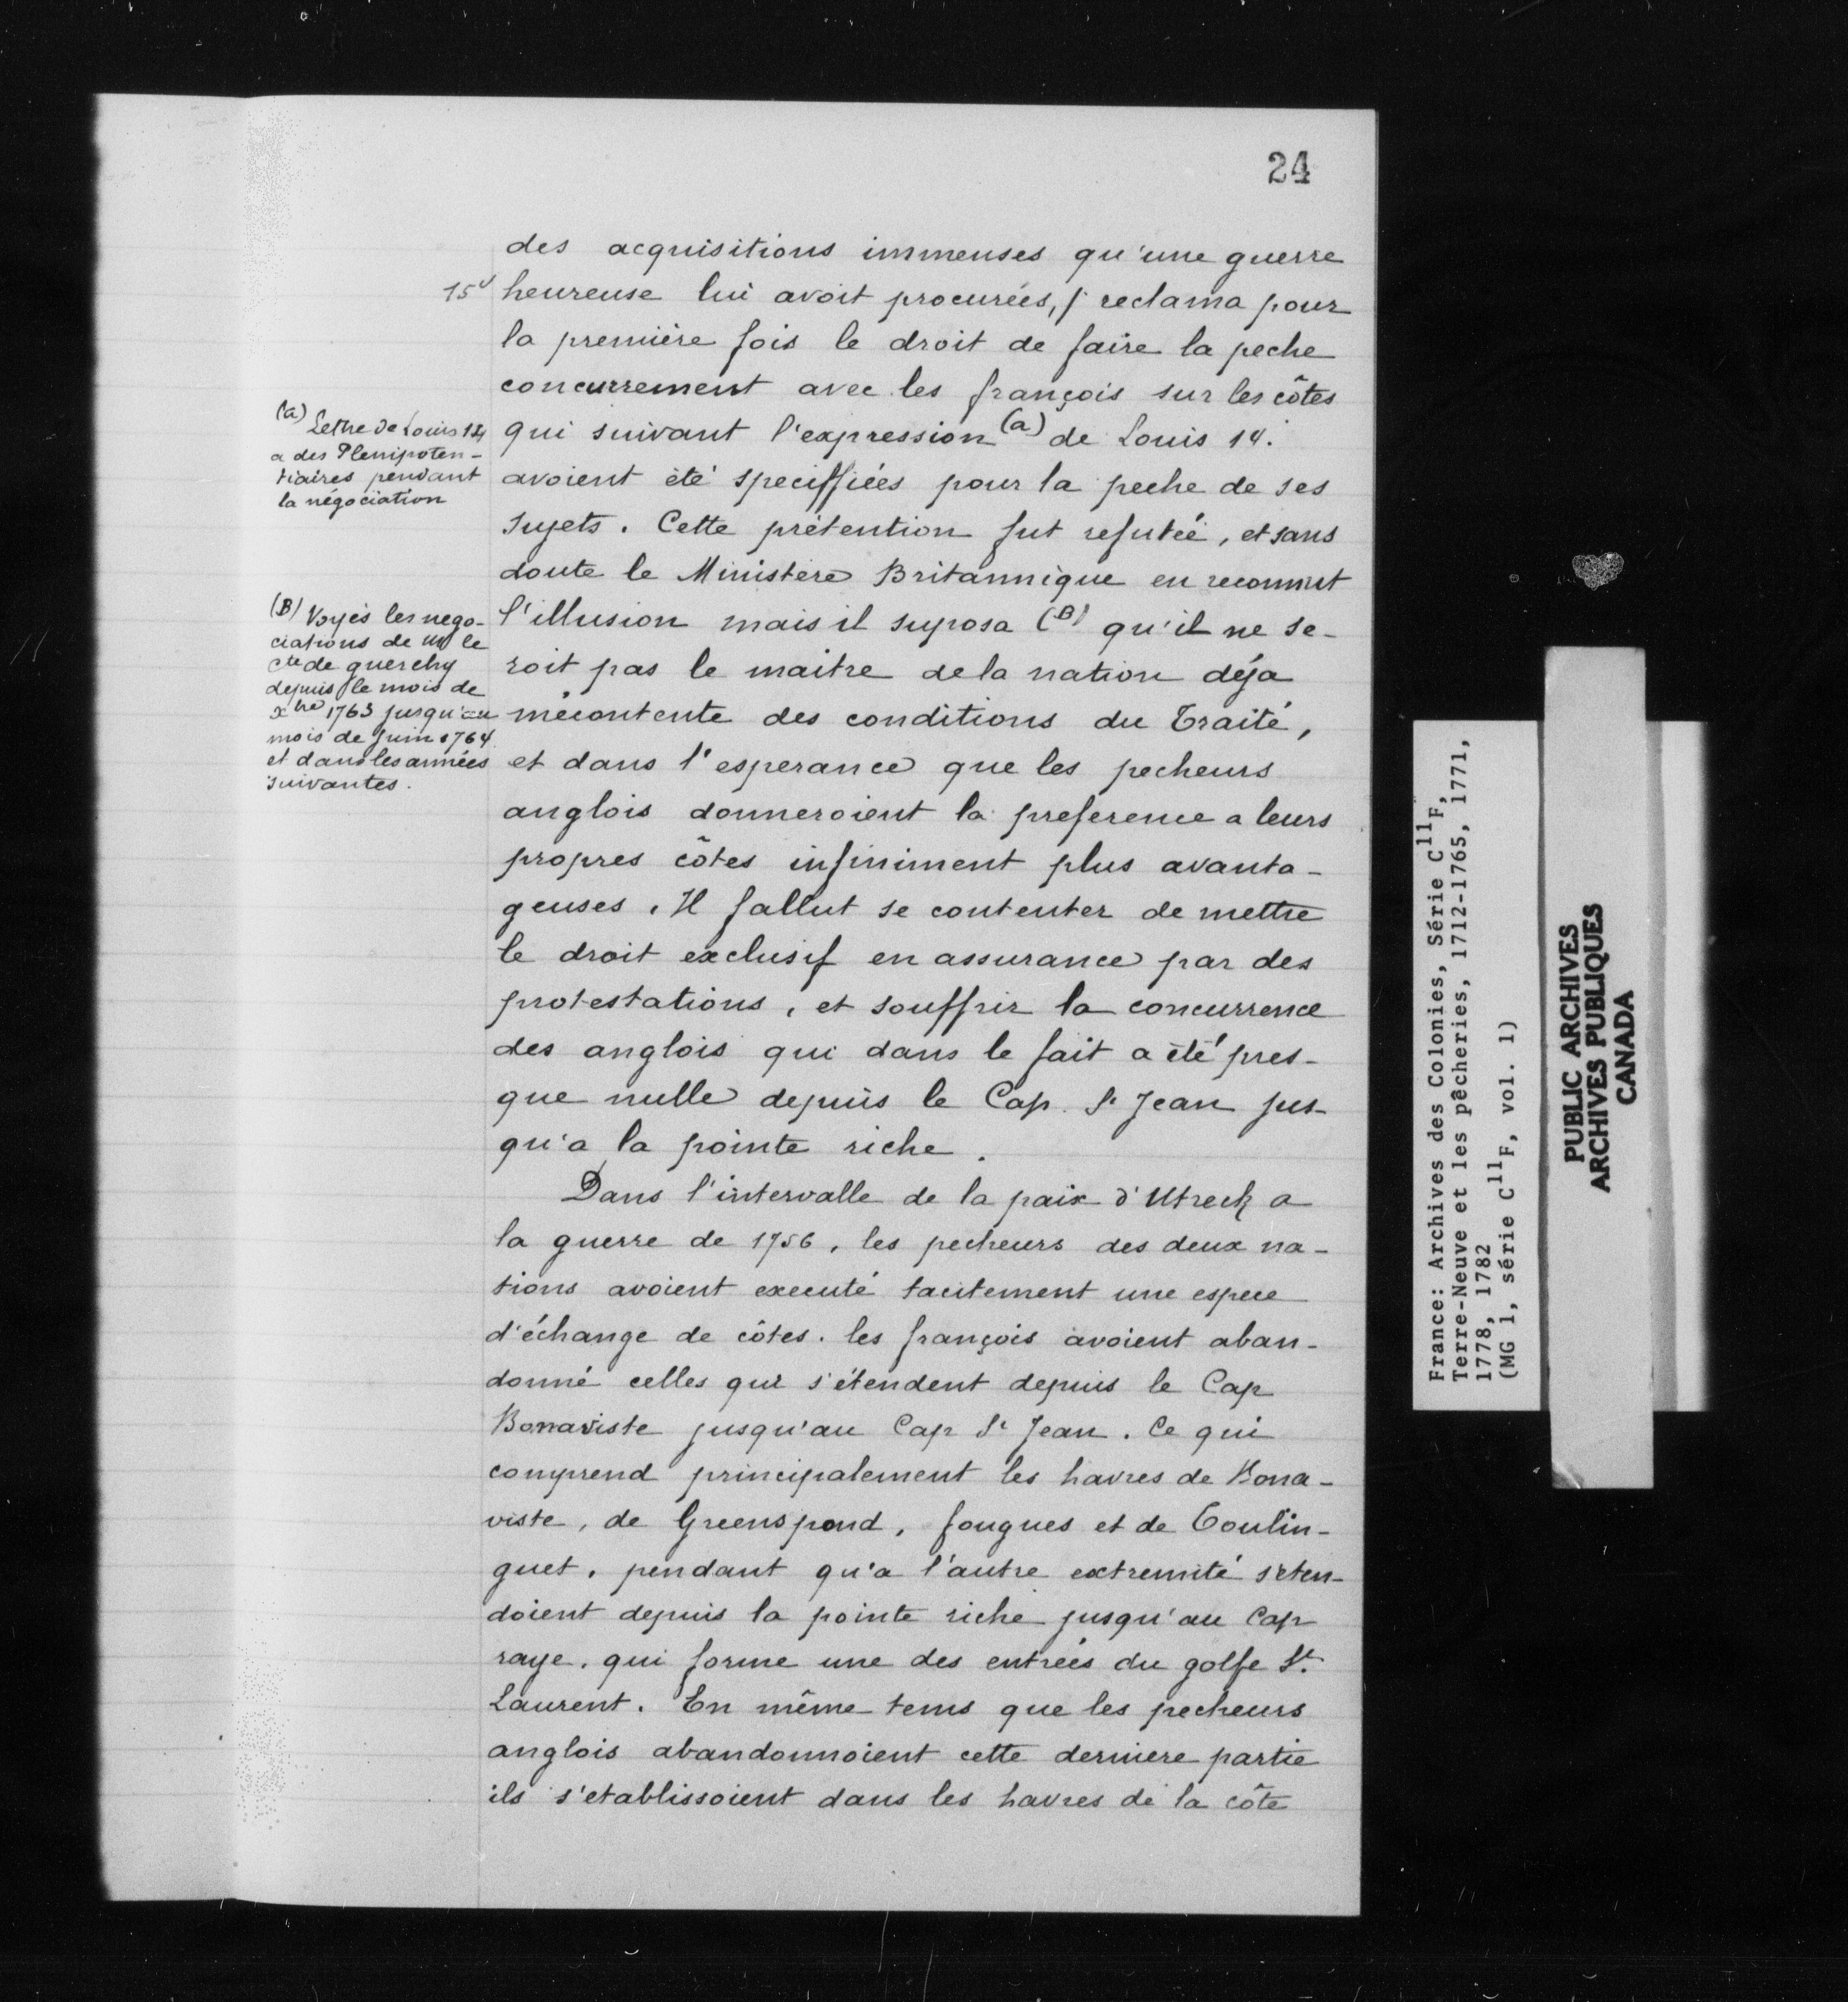 24
des acquisitions immenses qu'une guerre
15v heureuse lui avoit procurées, / reclama pour
la première fois le droit de faire la peche
concurrement avec les françois sur les côtes
qui suivant l'expression (a) de Louis 14.
avoient été speciffiées pour la peche de ses
sujets. Cette prétention fut refutée, et sans
doute le Ministère Britannique en reconnut
l'illusion mais il suposa (B) qu'il ne se-
roit pas le maitre de la nation déja
mécontente des conditions du Traité,
et dans l'esperance que les pecheurs
anglois donneroient la preference a leurs
propres côtes infiniment plus avanta-
geuses. Il fallut se contenter de mettre
le droit exclusif en assurance par des
protestations, et souffrir la concurrence
des anglois qui dans le fait a été pres-
que nulle depuis le Cap St Jean jus-
qu'a la pointe riche.
Dans l'intervalle de la paix d'Utreck a
la guerre de 1756, les pecheurs des deux na-
tions avoient executé tacitement une espece
d'échange de côtes. les françois avoient aban-
donné celles qui s'étendent depuis le Cap
Bonaviste jusqu'au Cap St Jean. Ce qui
comprend principalement les havres de Bona-
viste, de Greenspond, fougues et de Toulin-
guet, pendant qu'a l'autre extremité s'eten-
doient depuis la pointe riche jusqu'au Cap
raye, qui forme une des entrées du golfe St.
Laurent. En même tems que les pecheurs
anglois abandonnoient cette derniere partie
ils s'etablissoient dans les havres de la côte
(a) Lettre de Louis 14
a des Plenipoten-
tiaires pendant
la négociation
(B) Voyès les nego-
ciations de M le
Cte de guerchy
depuis le mois de
xbre 1763 jusqu'au
mois de Juin 1764
et dans les années
suivantes.
France: Archives des Colonies, Série C11F,
Terre-Neuve et les pêcheries, 1712-1765, 1771,
1778, 1782
(MG 1, série C11F, vol. 1)
PUBLIC ARCHIVES
ARCHIVES PUBLIQUES
CANADA